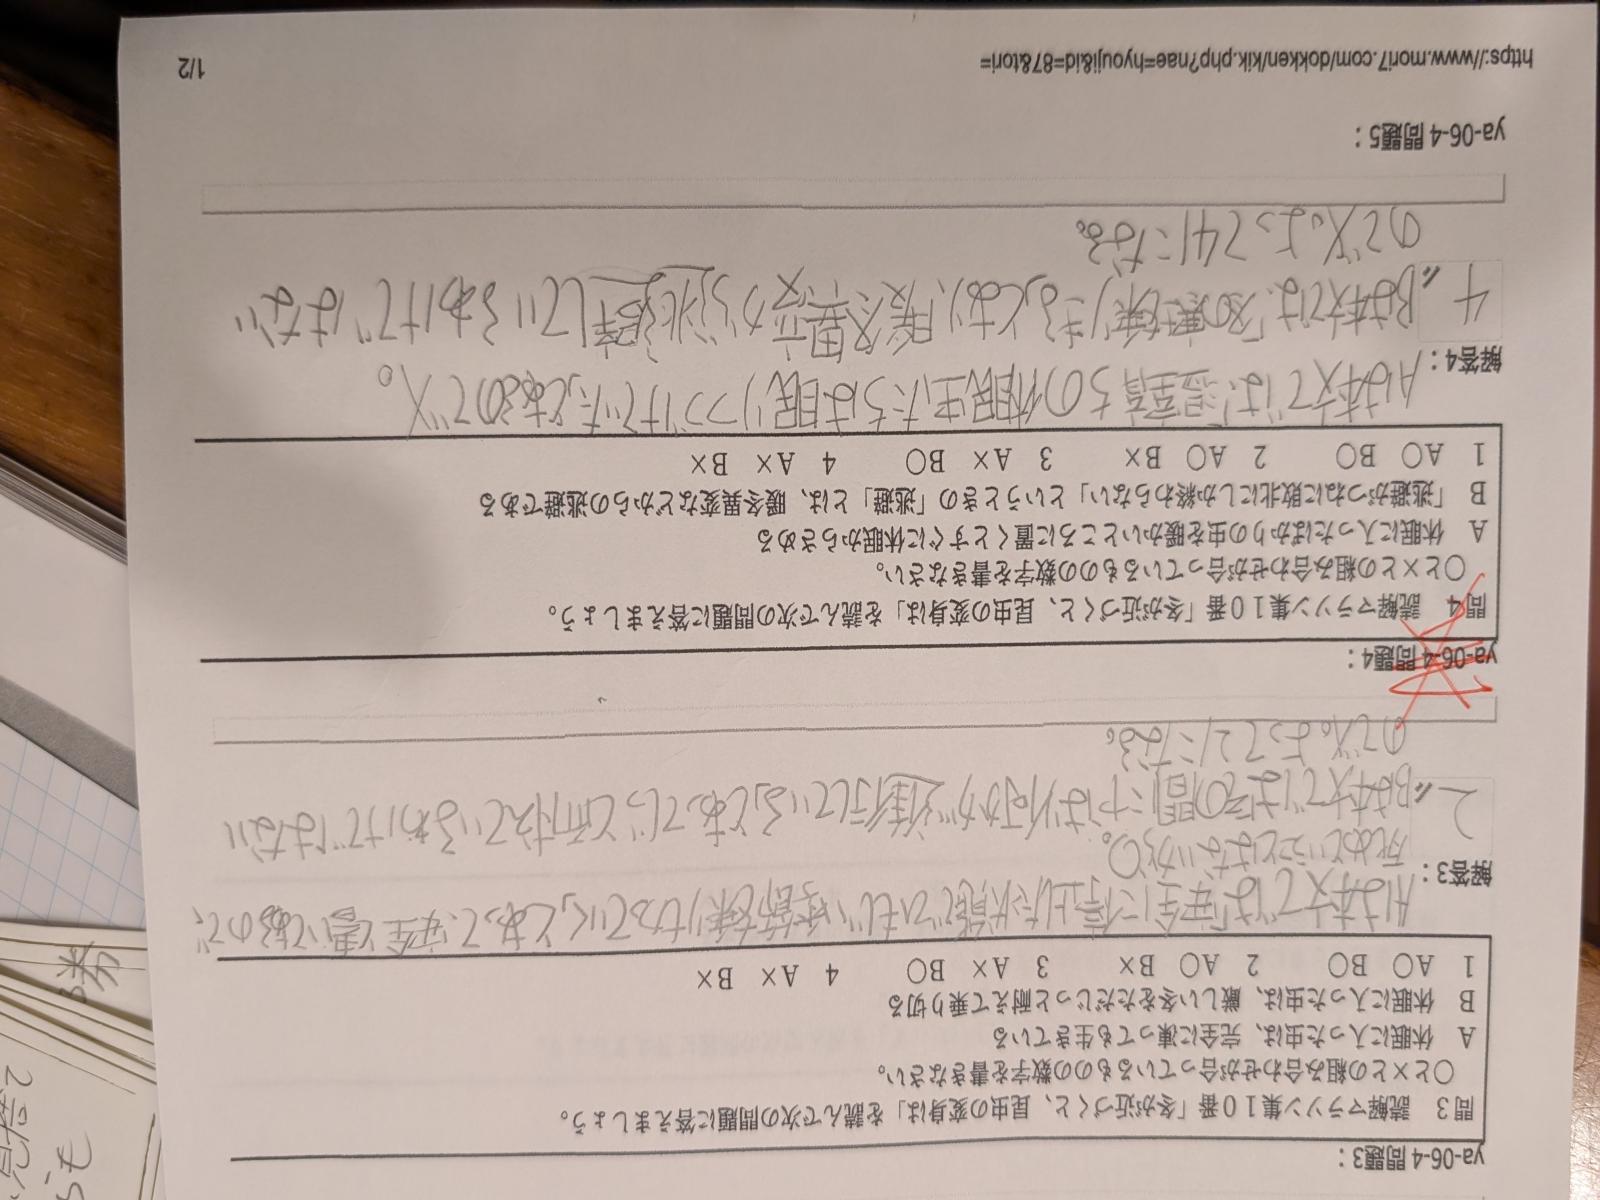 ya-06-4 問題3：
問3　読解マラソン集１０番「冬が近づくと、昆虫の変身は」を読んで次の問題に答えましょう。
○と×との組み合わせが合っているものの数字を書きなさい。
A　休眠に入った虫は、完全に凍っても生きている
B　休眠に入った虫は、厳しい冬をただじっと耐えて乗り切る
1　A○　B○　　2　A○　B×　　3　A×　B○　　4　A×　B×
Aは本文では「安全に停止した状態でひもじい季節を乗りきっていく」とあって、安全と書いてあるので、
死ぬということはないから○。
解答3：
2〃
Bは本文では「その間に十は何かが進行している」とあって、じっと耐えているわけではない
ので×。よって2になる。
ya-06-4 問題4：
問4　読解マラソン集１０番「冬が近づくと、昆虫の変身は」を読んで次の問題に答えましょう。
○と×との組み合わせが合っているものの数字を書きなさい。
A　休眠に入ったばかりの虫を暖かいところに置くとすぐに休眠からさめる
B　「逃避がつねに敗北にしか終わらない」というときの「逃避」とは、暖冬異変などからの逃避である
1　A○　B○　　2　A○　B×　　3　A×　B○　　4　A×　B×
Aは本文では「温室育ちの休眠虫たちは眠りつづけていた」とあるので×。
解答4：
4〃
Bは本文では、「冬の寒さを乗りきる」とあり、暖冬異変から逃避しているわけではない
ので×。よって4になる。
ya-06-4 問題5：
https://www.mori7.com/dokken/kik.php?nae=hyouji&id=87&tori=
1/2
8券